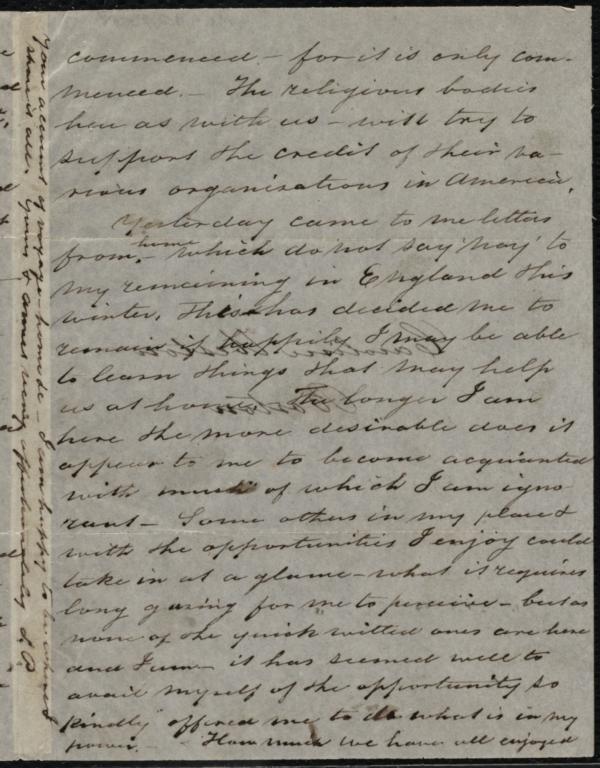 commenced - for it is only com-
menced. - The religious bodies
here as with us - will try to
support the credit of their va-
rious organizations in America.
Yesterday came to me letters
from home - which do not say 'nay' to
my remaining in England this
winter. This has decided me to
remain if happily I may be able
to learn things that may help
us at home. The longer I am
here the more desirable does it
appear to me to become acquainted
with much of which I am igno
rant - Some others in my place &
with the opportunities I enjoy could
take in at a glance - what it requires
long gazing for me to perceive - but as
none of the quick witted ones are here
and I am - it has seemed well to
avail myself of the opportunity so
kindly offered me to do what is in my
power. - How much we have all enjoyed
Your account of voyage - home &c - I am happy to be where I
am
Yours &
affectionately S P